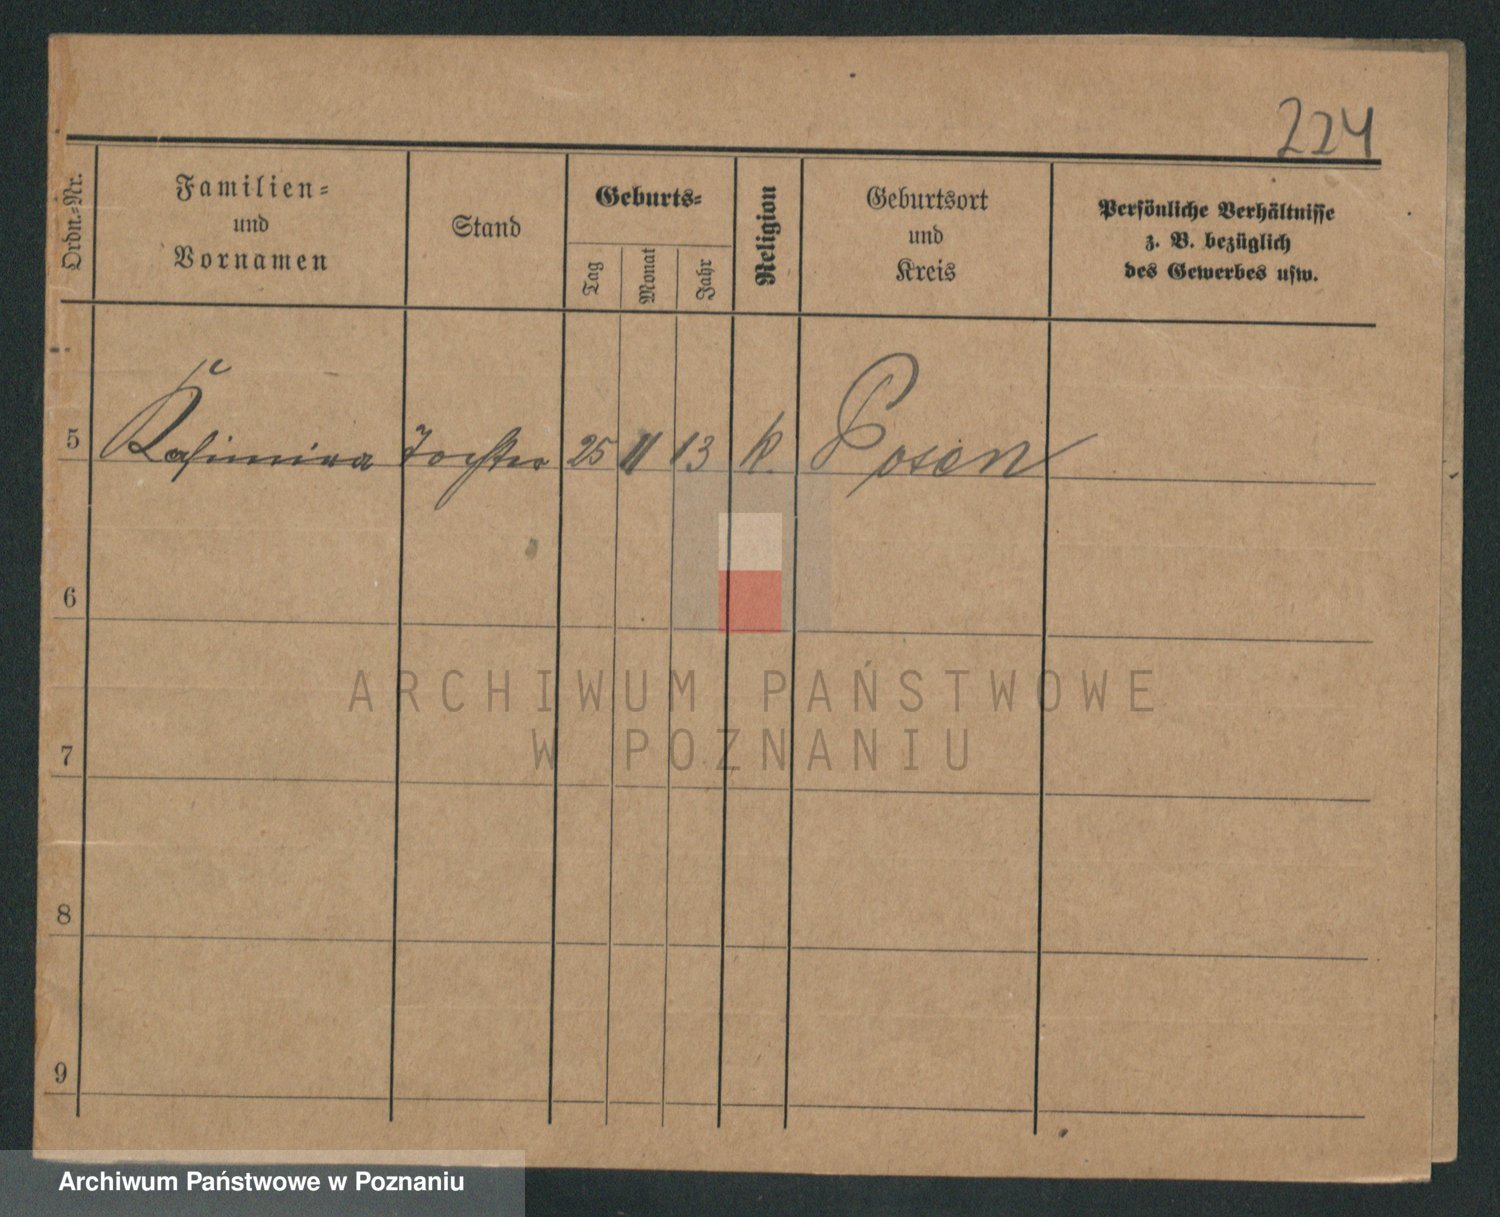 224
Ordn.-Nr.
Familien-
und
Vornamen
Stand
Geburts-
Tag
Monat
Jahr
Religion
Geburtsort
und
Kreis
Persönliche Verhältnisse
z. B. bezüglich
des Gewerbes usw.
5 Kasimira Tochter 25 11 13 k. Posen
6
7
8
9
ARCHIWUM PAŃSTWOWE
W POZNANIU
Archiwum Państwowe w Poznaniu